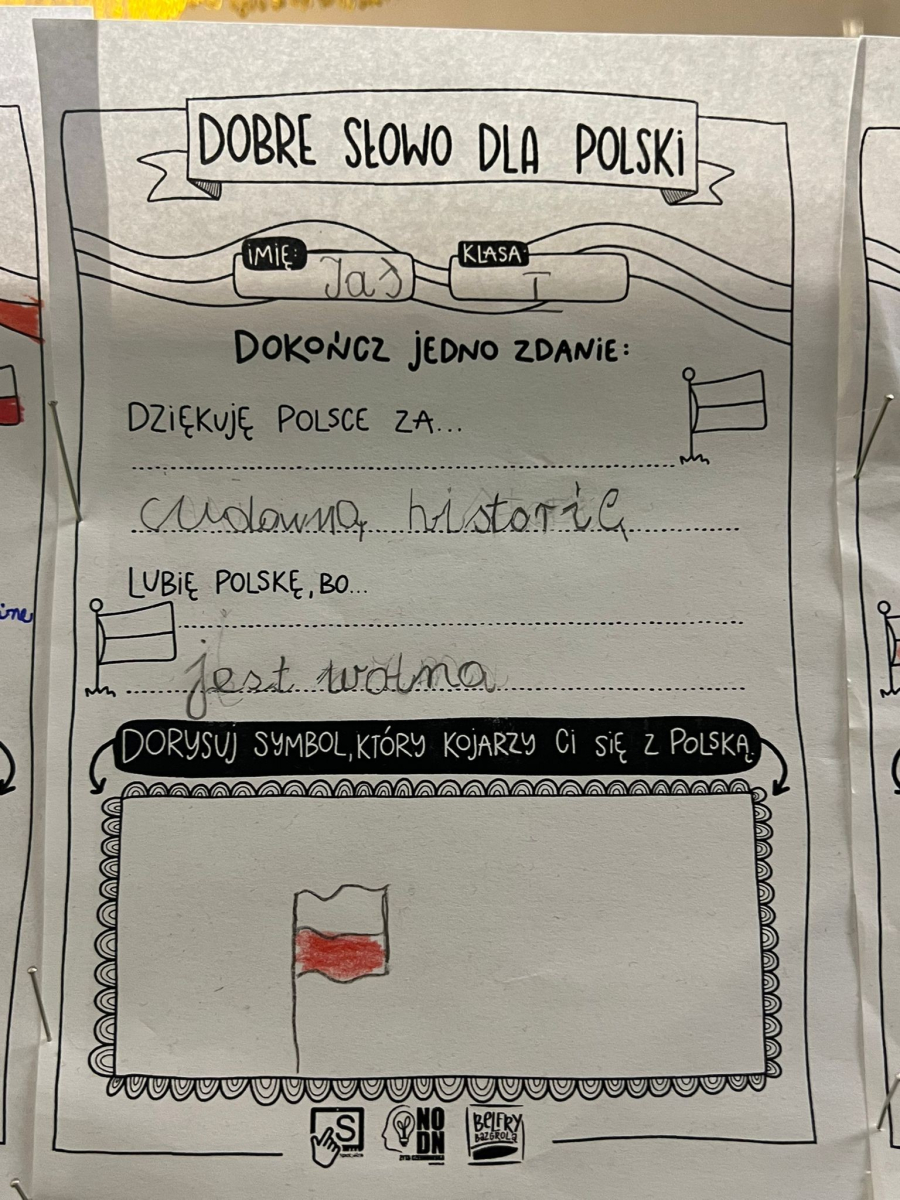 DOBRE SŁOWO DLA POLSKI
IMIĘ: Jaś
KLASA: I
DOKOŃCZ JEDNO ZDANIE:
DZIĘKUJĘ POLSCE ZA...
cudowną historię
LUBIĘ POLSKĘ, BO...
jest wolna
DORYSUJ SYMBOL, KTÓRY KOJARZY CI SIĘ Z POLSKĄ.
S
NO
DN
BELFRY
BAZGROLĄ